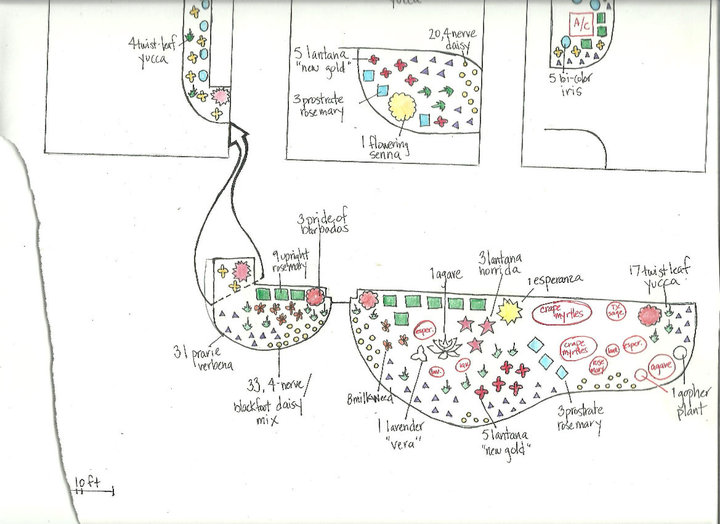 yucca
4 twist-leaf
yucca
5 lantana
"new gold"
3 prostrate
rosemary
1 flowering
senna
20, 4-nerve
daisy
A/C
5 bi-color
iris
3 pride of
barbados
9 upright
rosemary
31 prarie
verbena
33, 4-nerve/
blackfoot daisy
mix
1 agave
3 lantana
horrida
1 esperanza
17 twist leaf
yucca
crape
myrtles
TX
sage
espor.
crape
myrtles
espor.
lant.
rose
mary
agave
lav.
lav.
8 milkweed
1 lavender
"vera"
5 lantana
"new gold"
3 prostrate
rosemary
1 gopher
plant
10 ft